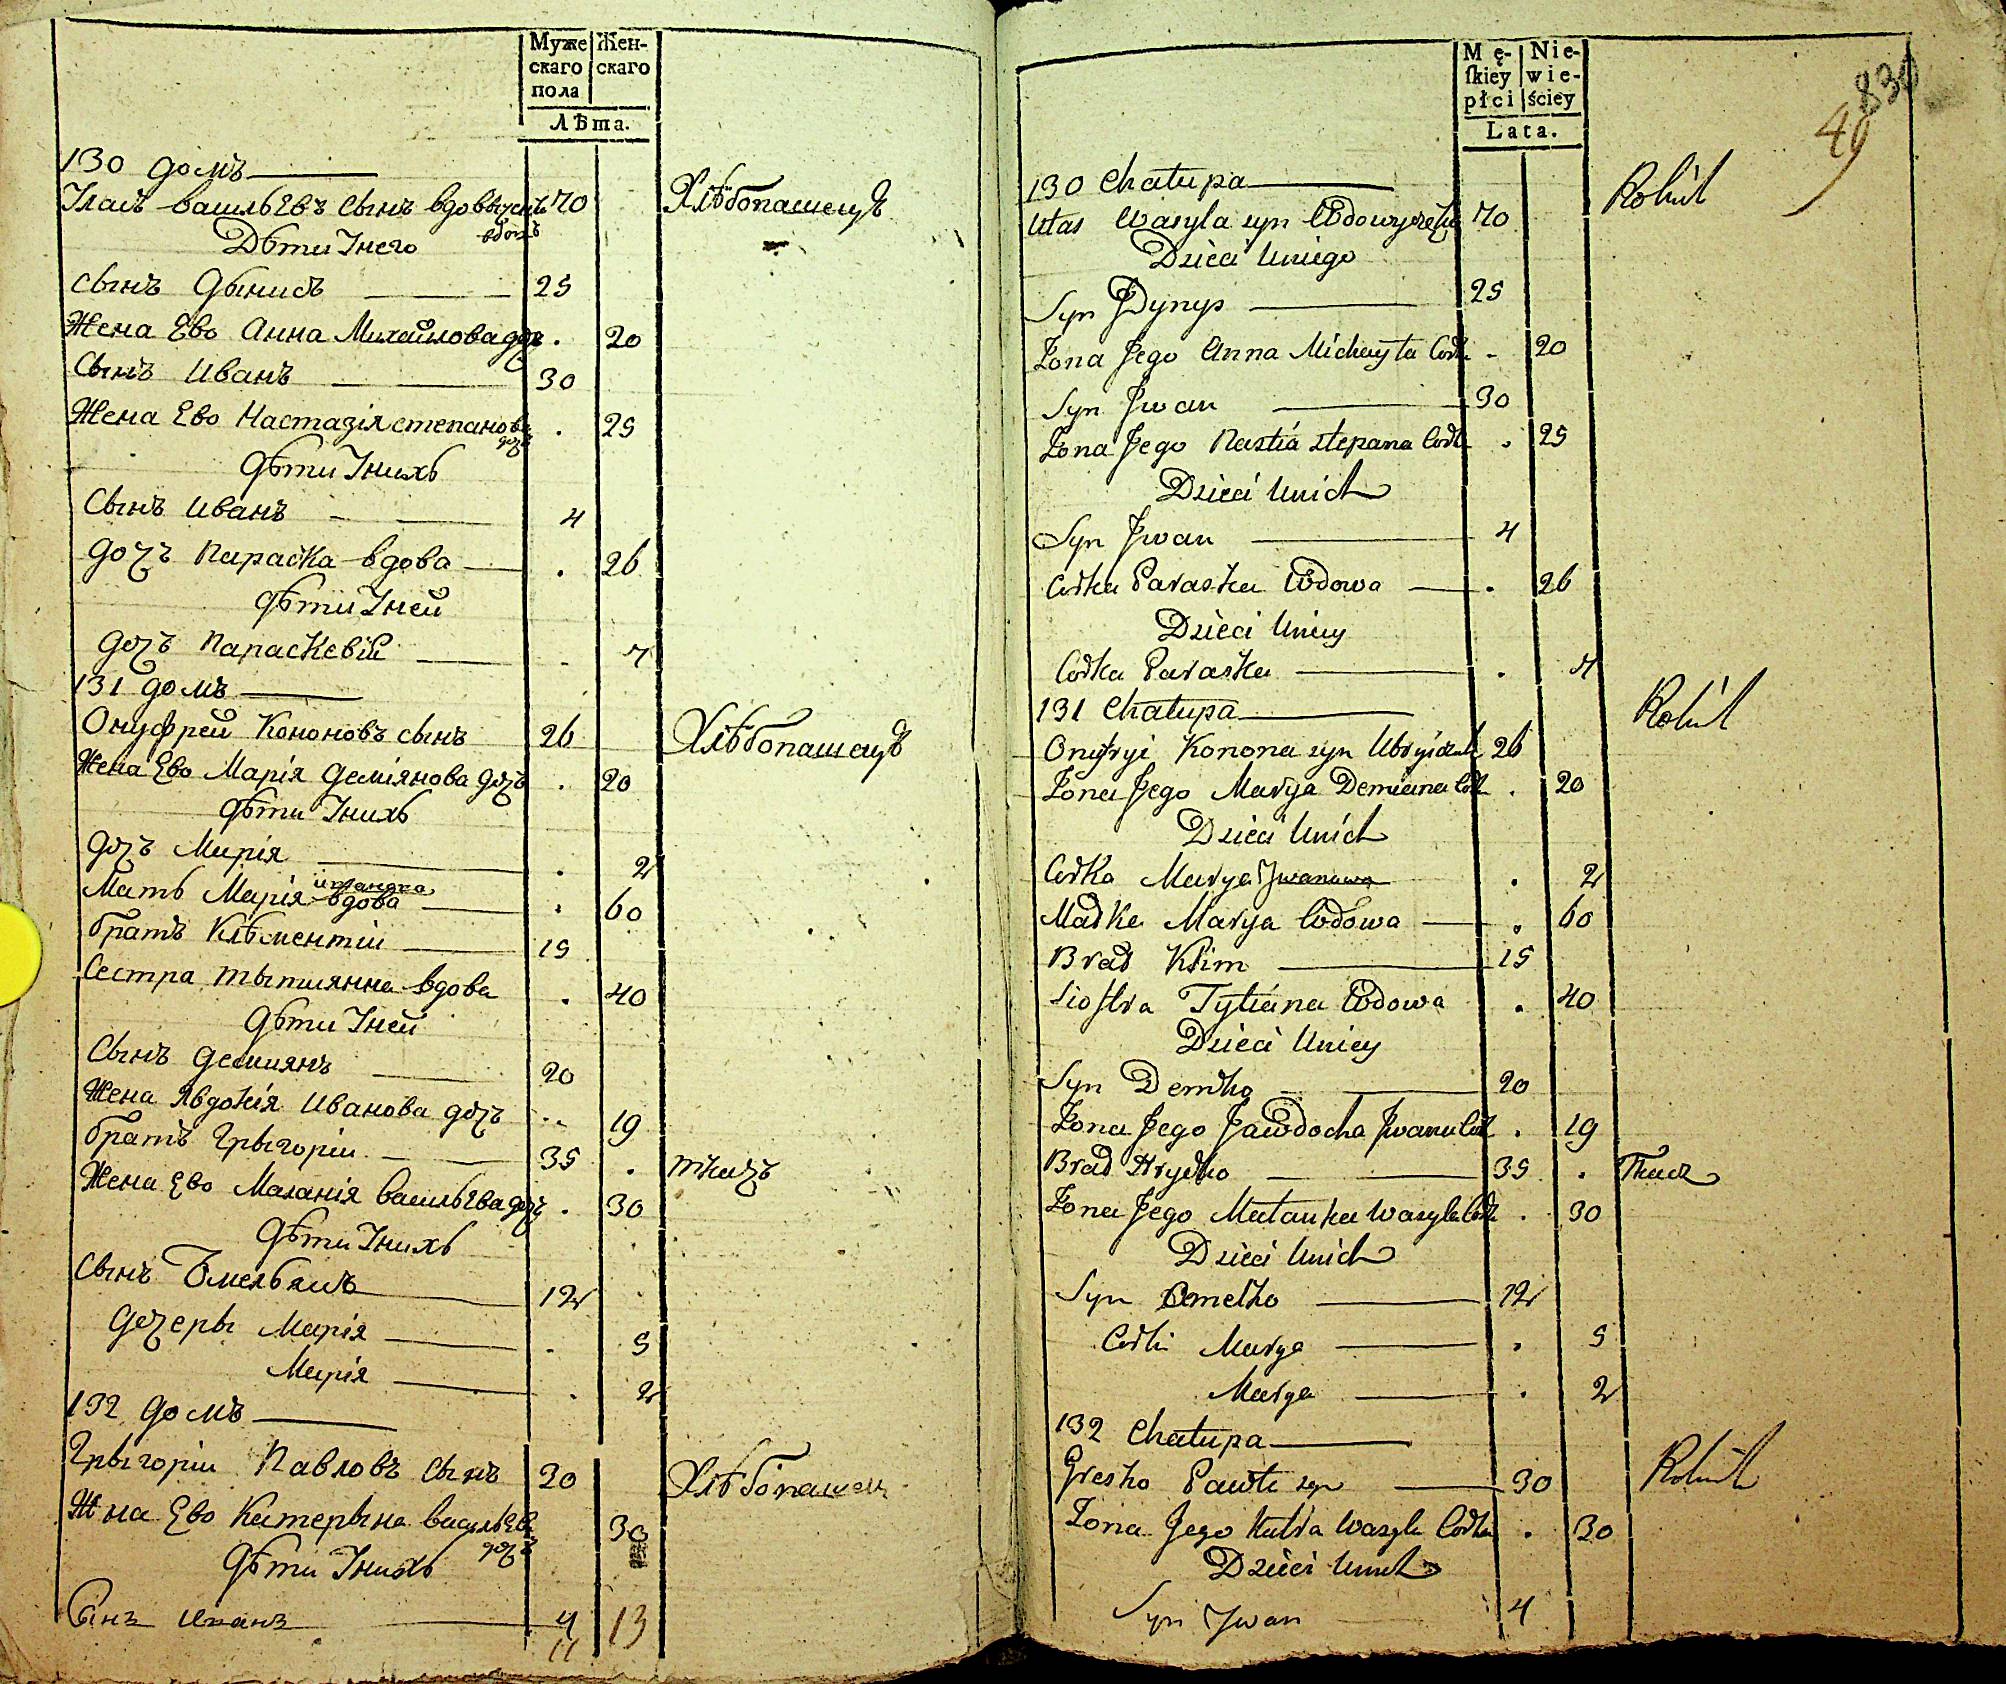 Муже
скаго
пола
Жен-
скаго
Лѣта.
130 домъ
Улась васильевъ сынъ 70 Хлѣбопашецъ
вдовъ
Дѣти Унего
сынъ Дынисъ 25
Жена Ево Анна Михайлова дочь . 20
Сынъ Иванъ 30
Жена Ево Настазія степанова . 25
дочъ
Дѣти Унихъ
Сынъ Иванъ 4
дочъ Параска вдова . 26
дѣти Уней
дочъ Параскевій . 7
131 домъ
Онуфрей Кононовъ сынъ 26 Хлѣбопашецъ
Жена Ево Марія Деміянова дочъ . 20
дѣти Унихъ
дочъ Марія . 2
Мать Марія вдова . 60
братъ Клѣментіи 15
Сестра тытиянна вдова . 40
Дѣти Уней
Сынъ Демиянъ 20
Жена Явдокія Иванова дочъ . 19
братъ Грыгоріи 35 . ткачъ
Жена Ево Маланія васильева дочъ . 30
Дѣти Унихъ
Сынъ Омельянъ 12
Дочеры Марія . 5
Марія . 2
132 домъ
Грыгоріи Павловъ сынъ 30 Хлѣбопашец
Жена Ево Катерына васильева 30
дочъ
Дѣти Унихъ
Сынъ Иванъ 4
11 13
Mę-
skiey
płci
Nie-
wie-
ściey
Lata.
830
49
130 Chałupa Rolnik
Ułas Wasyla syn 70
Dzieci Uniego
Syn Dynys 25
Żona Jego Anna Michayła Codk - 20
Syn Jwan 30
Żona Jego Nastia stepana Codk . 25
Dzieci Unich
Syn Jwan 4
Codka Paraska Wdowa . 26
Dzieci Uniey
Codka Paraska . 7
131 Chałupa Rolnik
Onufryi Konona syn 26
Żona Jego Marya Demiana Codk . 20
Dzieci Unich
Codka Marya Jwanowa . 2
Madka Marya Wdowa . 60
Brad Klim 15
Siostra Tytiana Wdowa . 40
Dzieci Uniey
Syn Demko 20
Żona Jego Jawdocha Jwana Codk . 19
Brad Hryćko 35 . Tkacz
Żona Jego Małanka Wasyla Codk . 30
Dzieci Unich
Syn Omelko 12
Codki Marya . 5
Marya . 2
132 Chałupa
Gresko Pawła syn 30 Rolnik
Żona Jego Katra Wasyla Codka . 30
Dzieci Unich
Syn Jwan 4